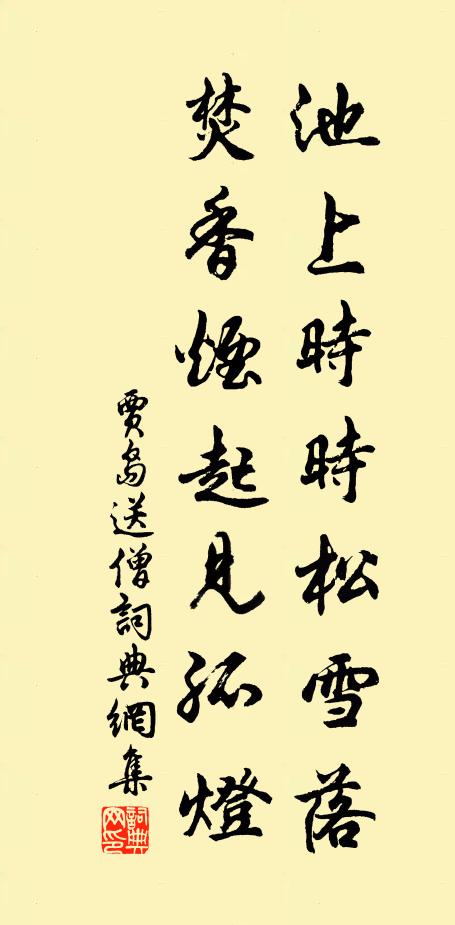 池上時時松雪落
焚香煙起見孤燈
賈島送僧詞典網集
詞典網印